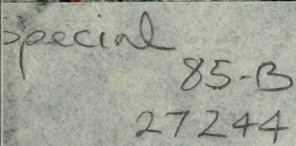 Special
85-B
27244